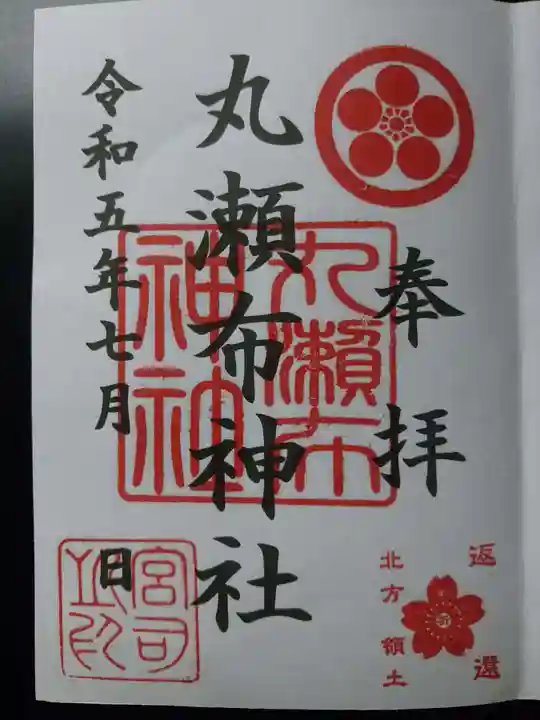 奉拝
丸瀬布神社
令和五年七月 日
丸瀬布
神社
宮司
之印
返還
北方領土